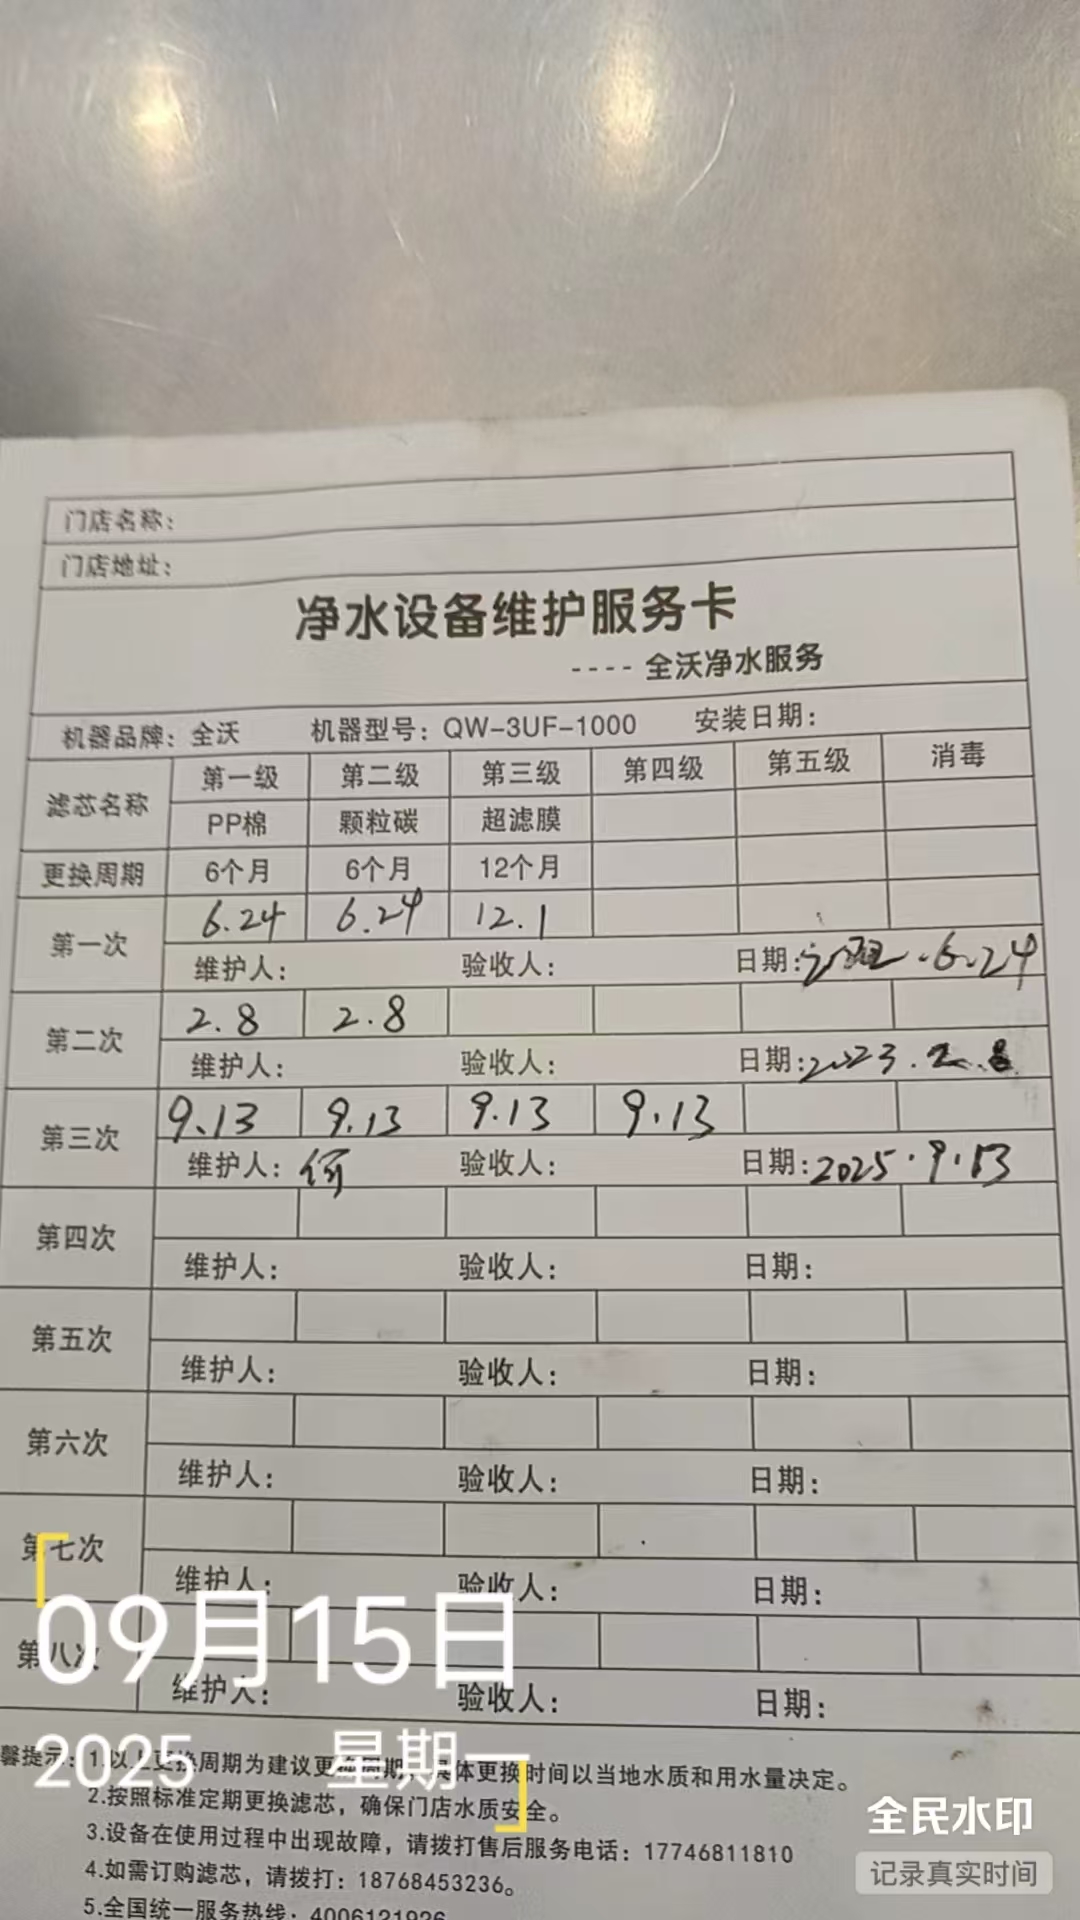 门店名称：
门店地址：
净水设备维护服务卡
---- 全沃净水服务
机器品牌：全沃 机器型号：QW-3UF-1000 安装日期：
滤芯名称 第一级 第二级 第三级 第四级 第五级 消毒
PP棉 颗粒碳 超滤膜
更换周期 6个月 6个月 12个月
第一次 6.24 6.24 12.1
维护人： 验收人： 日期： .6.24
第二次 2.8 2.8
维护人： 验收人： 日期：2023.2.8
第三次 9.13 9.13 9.13 9.13
维护人：何 验收人： 日期：2025.9.13
第四次
维护人： 验收人： 日期：
第五次
维护人： 验收人： 日期：
第六次
维护人： 验收人： 日期：
第七次
维护人： 验收人： 日期：
第八次
维护人： 验收人： 日期：
09月15日
2025 星期一
馨提示：1.以上更换周期为建议更换周期，具体更换时间以当地水质和用水量决定。
2.按照标准定期更换滤芯，确保门店水质安全。
3.设备在使用过程中出现故障，请拨打售后服务电话：17746811810
4.如需订购滤芯，请拨打：18768453236。
5.全国统一服务热线：4006121926
全民水印
记录真实时间